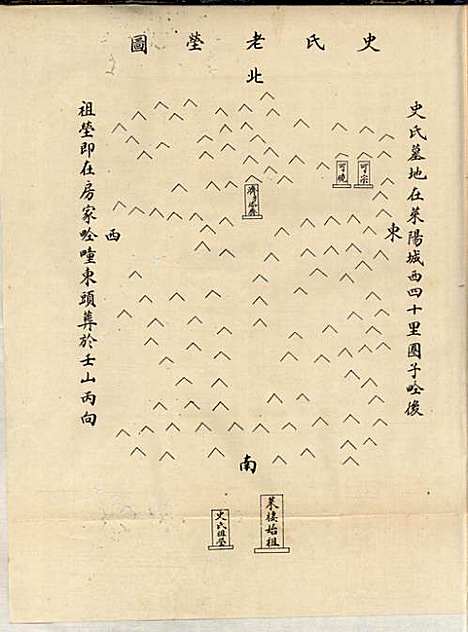 史氏老塋圖
北
史氏墓地在萊陽城西四十里團子𡵆後
東
可宗
可曉
西
祖塋即在房家𡵆疃東頭葬於壬山丙向
南
萊棲始祖
史氏祖塋